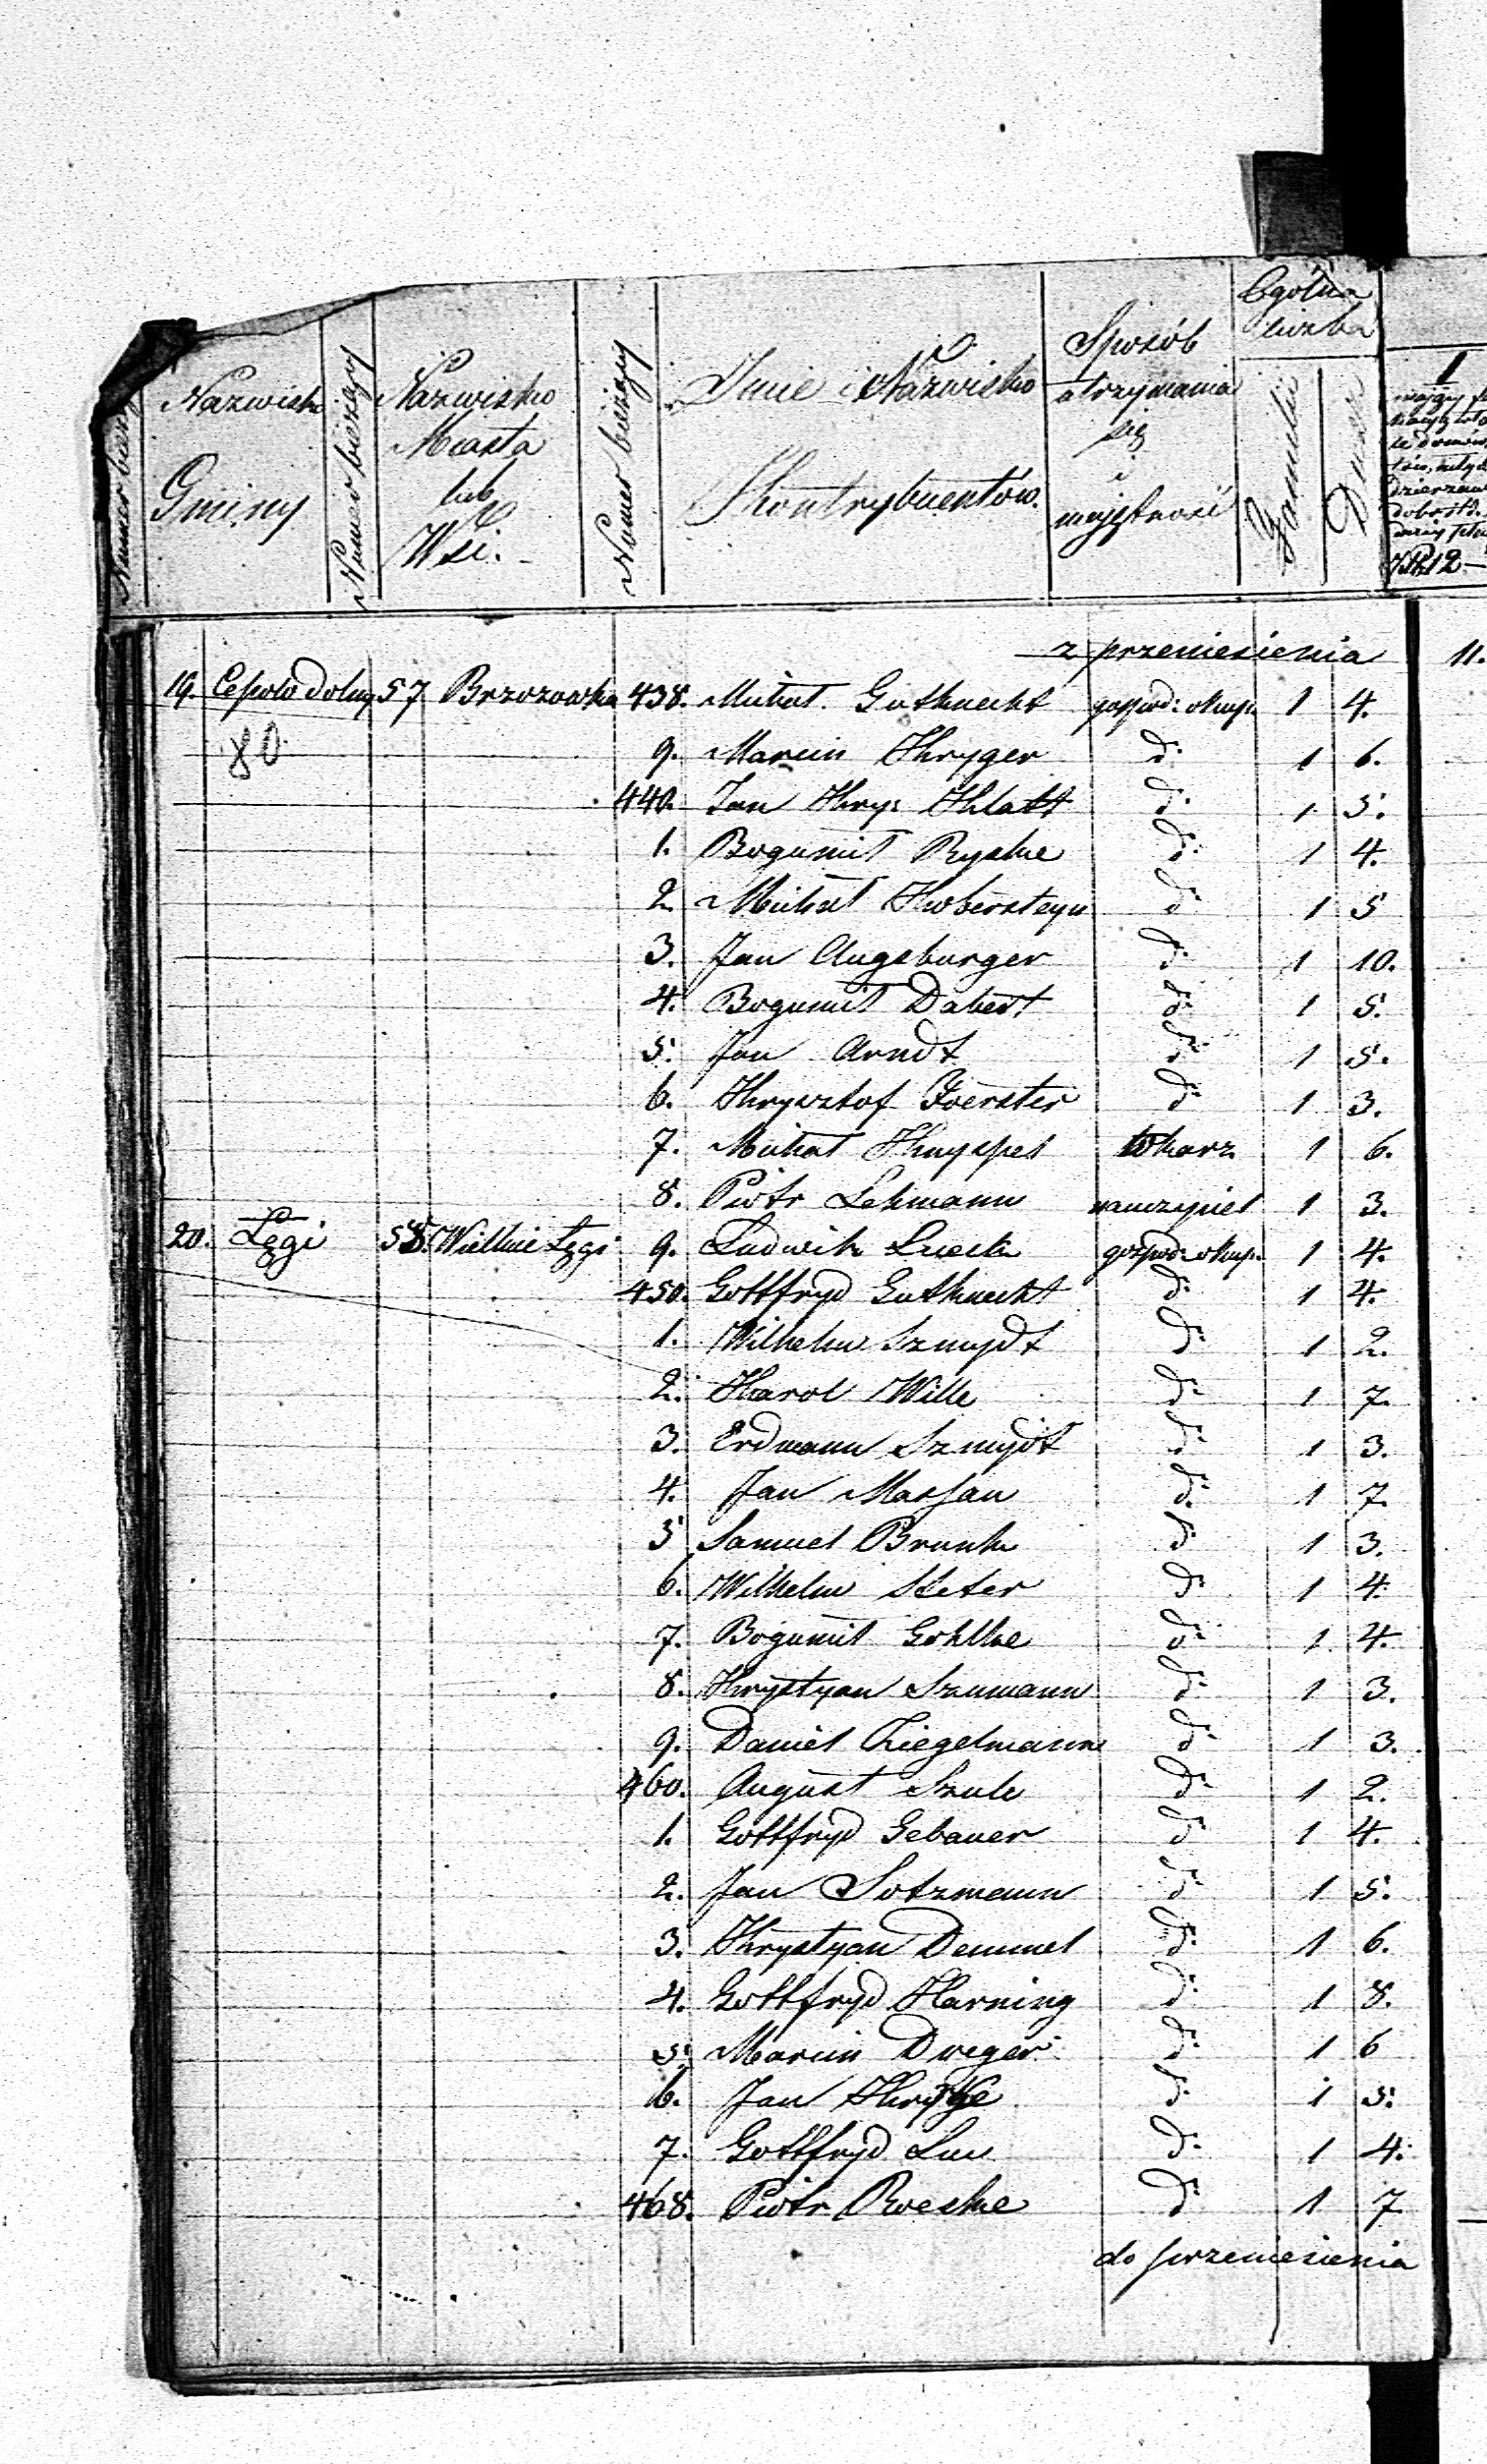 Numer bieżący
Nazwisko Gminy
Numer bieżący
Nazwisko Miasta lub Wsi.
Numer bieżący
Imie i Nazwisko Kontrybuentów.
Sposób utrzymania się i majętność
Ogólna liczba
Familii
Dusz
1
z przeniesienia 11.
19. 57 Brzozowka 438. Michał Gutknecht gospod: okup. 1 4.
80 9. Marcin Kryger d. 1 6.
440. Jan Kry: Klatt d. 1 5.
1. Bogumił Ryske d. 1 4.
2. Michał d. 1 5
3. Jan Augsburger d. 1 10.
4. Bogumił Dabert d. 1 5.
5. Jan Arndt d. 1 5.
6. Krysztof Foerster d. 1 3.
7. Michał Knyspel tokarz 1 6.
8. Piotr Lehmann nauczyciel 1 3.
20. Łęgi 58. Wielkie Łęgi 9. Ludwik Lueck gospod: okup. 1 4.
450. Gottfryd Gutknecht d. 1 4.
1. Wilhelm Szmydt d. 1 2.
2. Karol Wille d. 1 7.
3. Erdmann Szmydt d. 1 3.
4. Jan Marjan d. 1 7.
5 Samuel Brunk d. 1 3.
6. Wilhelm d. 1 4.
7. Bogumił Gohlke d. 1 4.
8. Krystyan Szumann d. 1 3.
9. Daniel Ziegelmann d. 1 3.
460. August Szulc d. 1 2.
1. Gottfryd Gebauer d. 1 4.
2. Jan Sotzmann d. 1 5.
3. Krystyan Demmel d. 1 6.
4. Gottfryd Harning d. 1 8.
5. Marcin Dreger d. 1 6
6. Jan d. 1 5.
7. Gottfryd d. 1 4.
468. Piotr Roeske d. 1 7
do przeniesienia